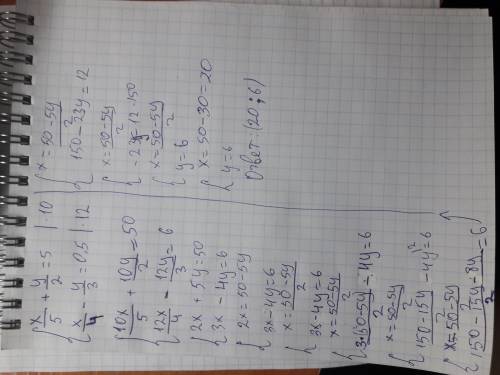 { x/5 + y/2 = 5 | ·10
x/4 - y/3 = 0,5 | ·12
{ 10x/5 + 10y/2 = 50
12x/4 - 12y/3 = 6
{ 2x + 5y = 50
3x - 4y = 6
{ 2x = 50 - 5y
3x - 4y = 6
{ x = 50-5y/2
3x - 4y = 6
{ x = 50-5y/2
3·50-5y/2 - 4y = 6
{ x = 50-5y/2
150-15y/2 - 4y = 6
{ x = 50-5y/2
150-15y-8y/2 = 6
{ x = 50-5y/2
150 - 23y = 12
{ x = 50-5y/2
-23y = 12-150
{ x = 50-5y/2
y = 6
{ x = 50-30 = 20
y = 6
Ответ: (20 ; 6)